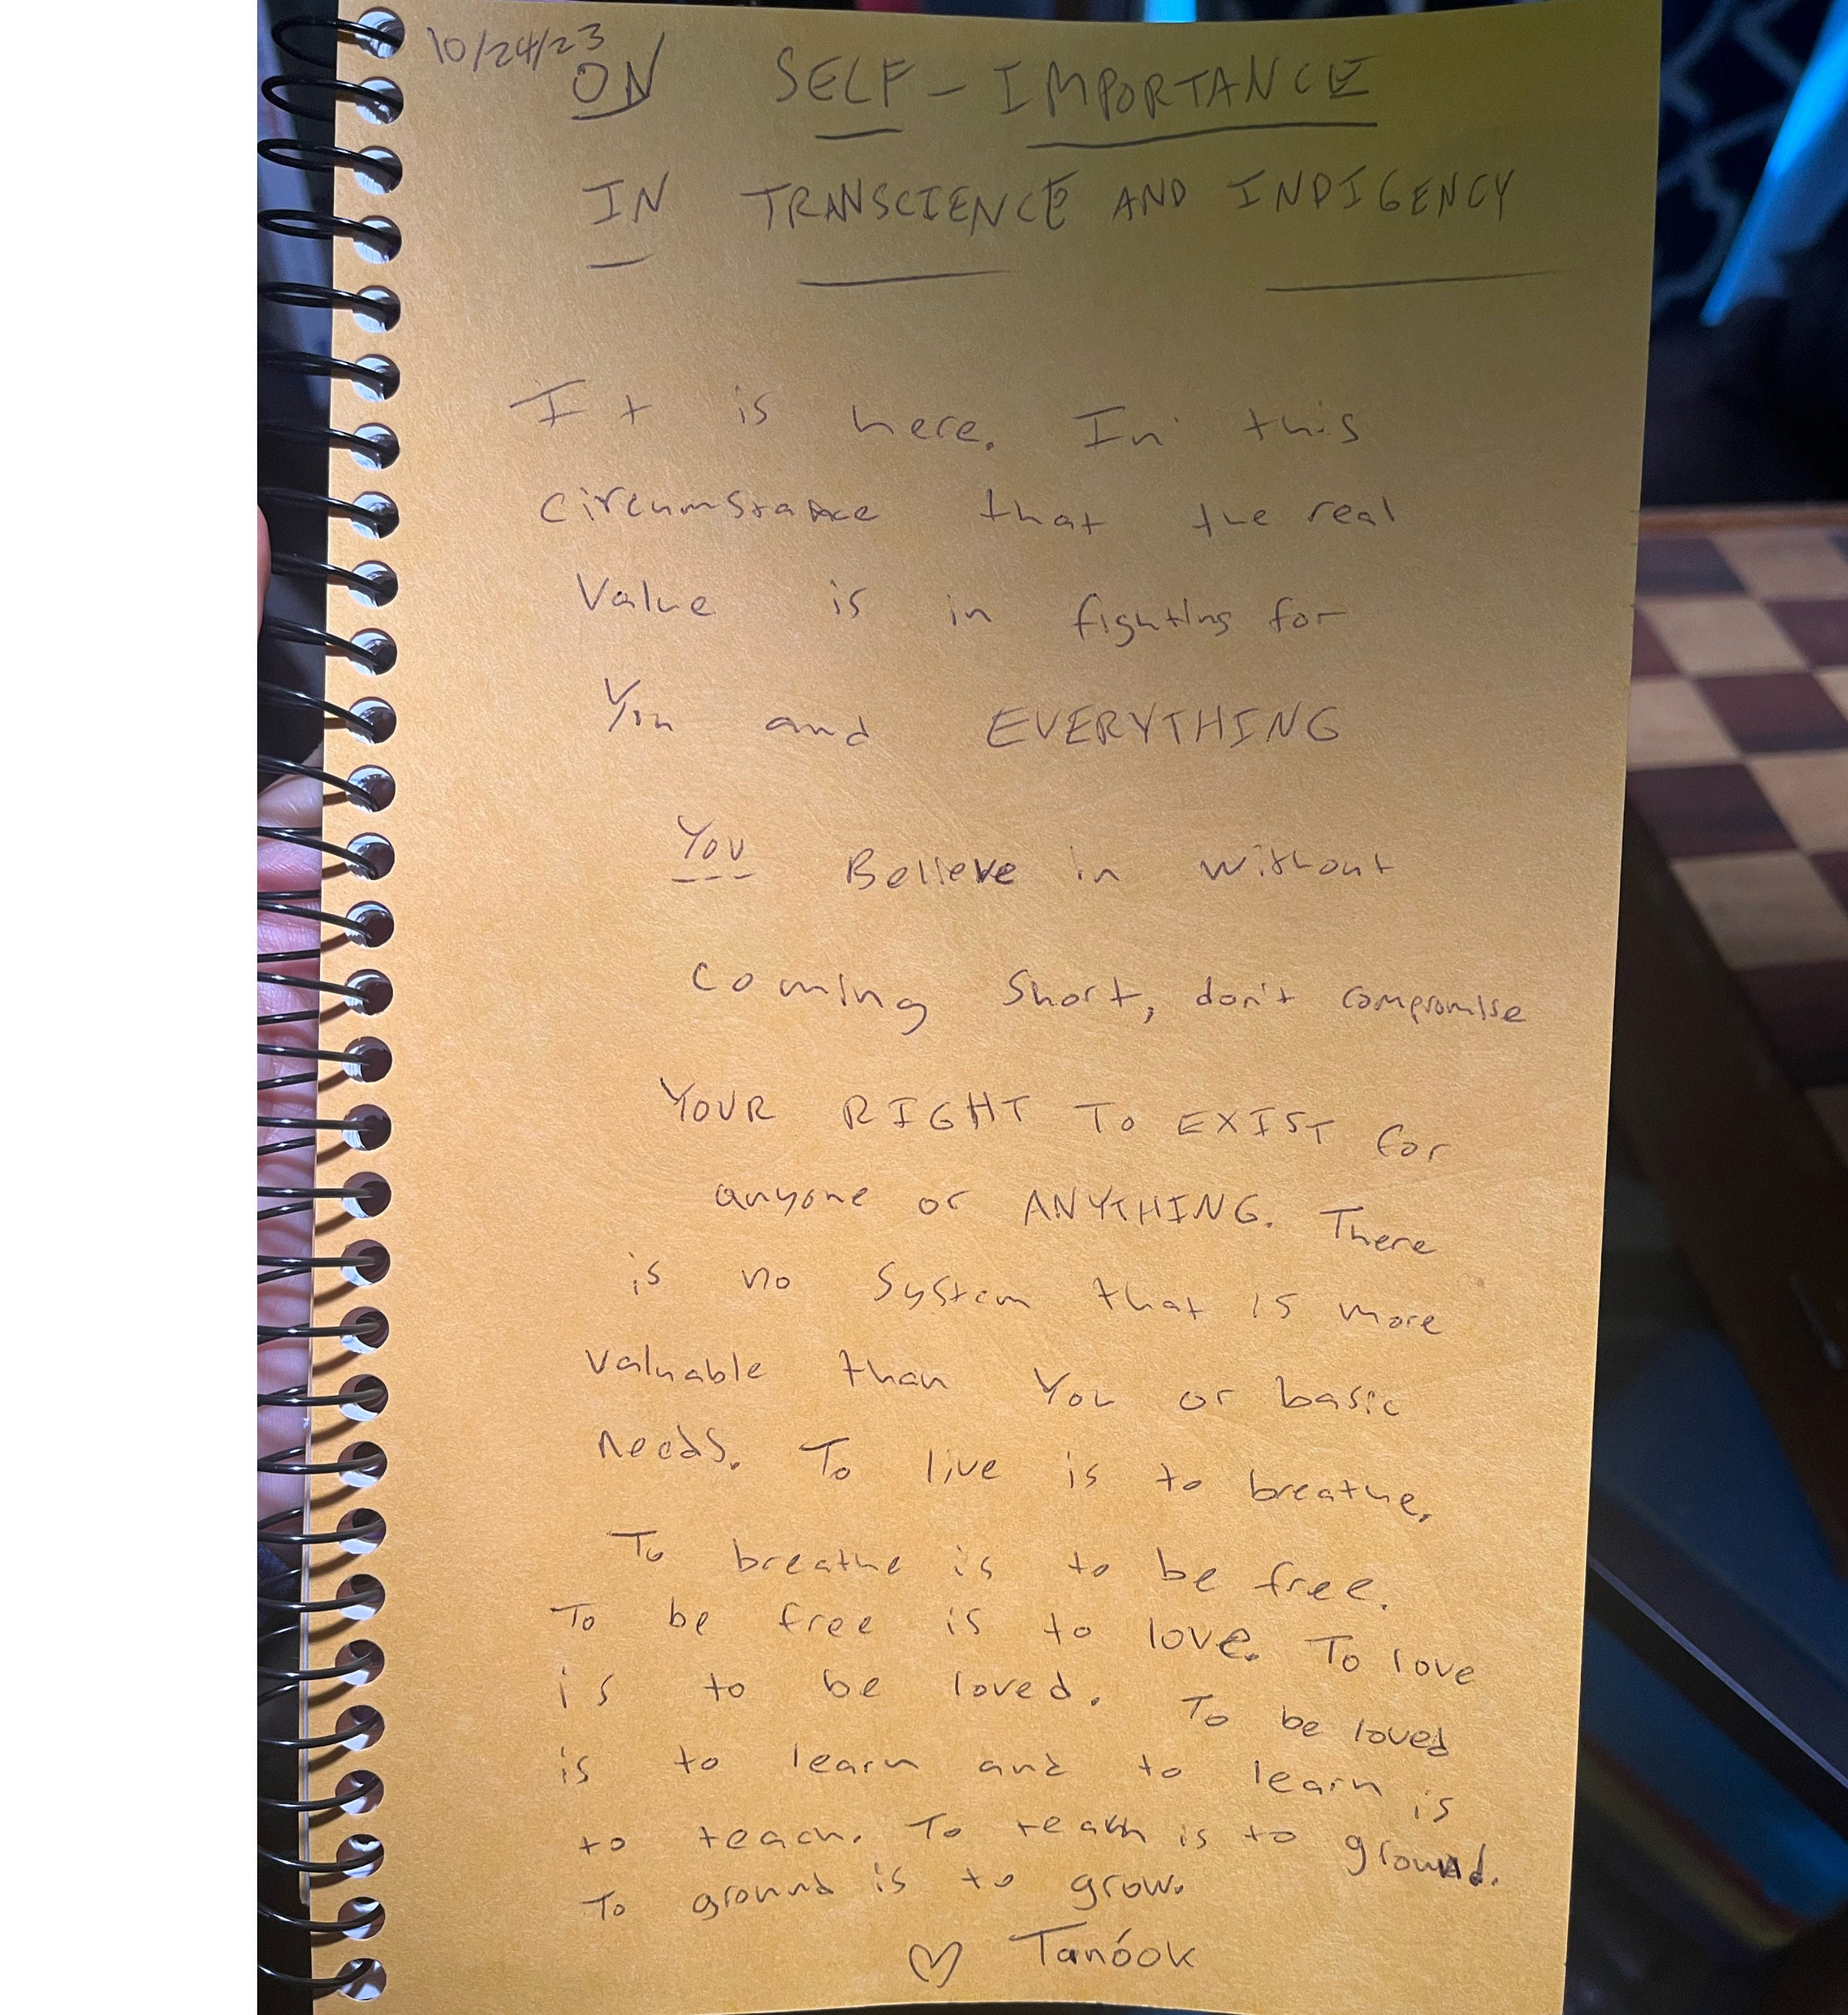 10/24/23
ON SELF-IMPORTANCE
IN TRANSCIENCE AND INDIGENCY
It is here. In this
circumstance that the real
Value is in fighting for
You and EVERYTHING
YOU Believe in without
coming short, don't compromise
YOUR RIGHT TO EXIST for
anyone or ANYTHING. There
is no system that is more
valuable than You or basic
needs. To live is to breathe.
To breathe is to be free.
To be free is to love. To love
is to be loved. To be loved
is to learn and to learn is
to teach. To teach is to ground.
To ground is to grow.
♡ Tanóok